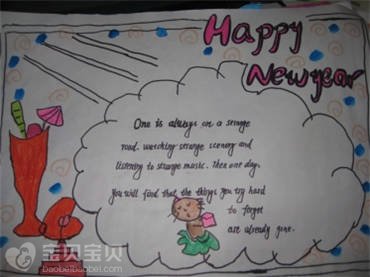 Happy
New year
One is always on a strange
road. watching strange scenery and
listening to strange music. Then one day.
you will find that the things you try hard
to forget
are already gone.
宝贝宝贝
baobeibaobei.com